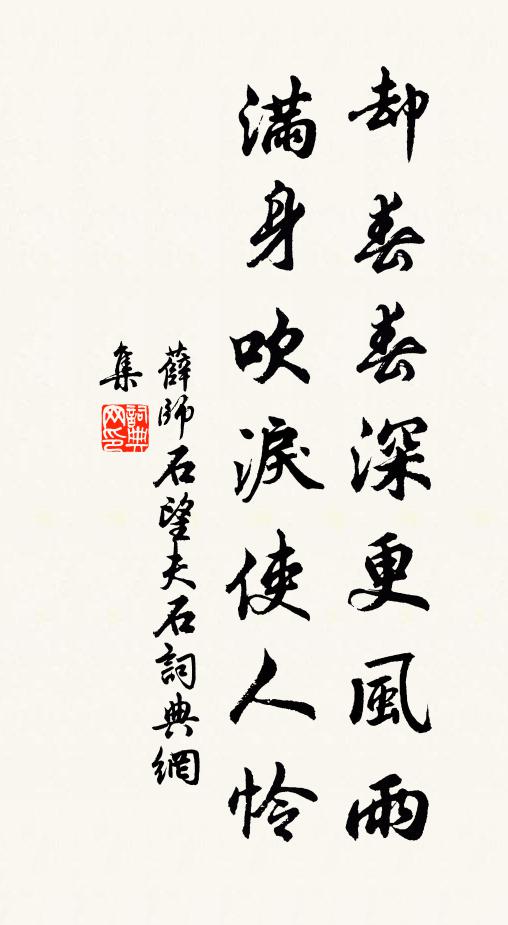 却春春深更風雨
滿身吹淚使人怜
薛師石望夫石詞典網
集
詞典網印